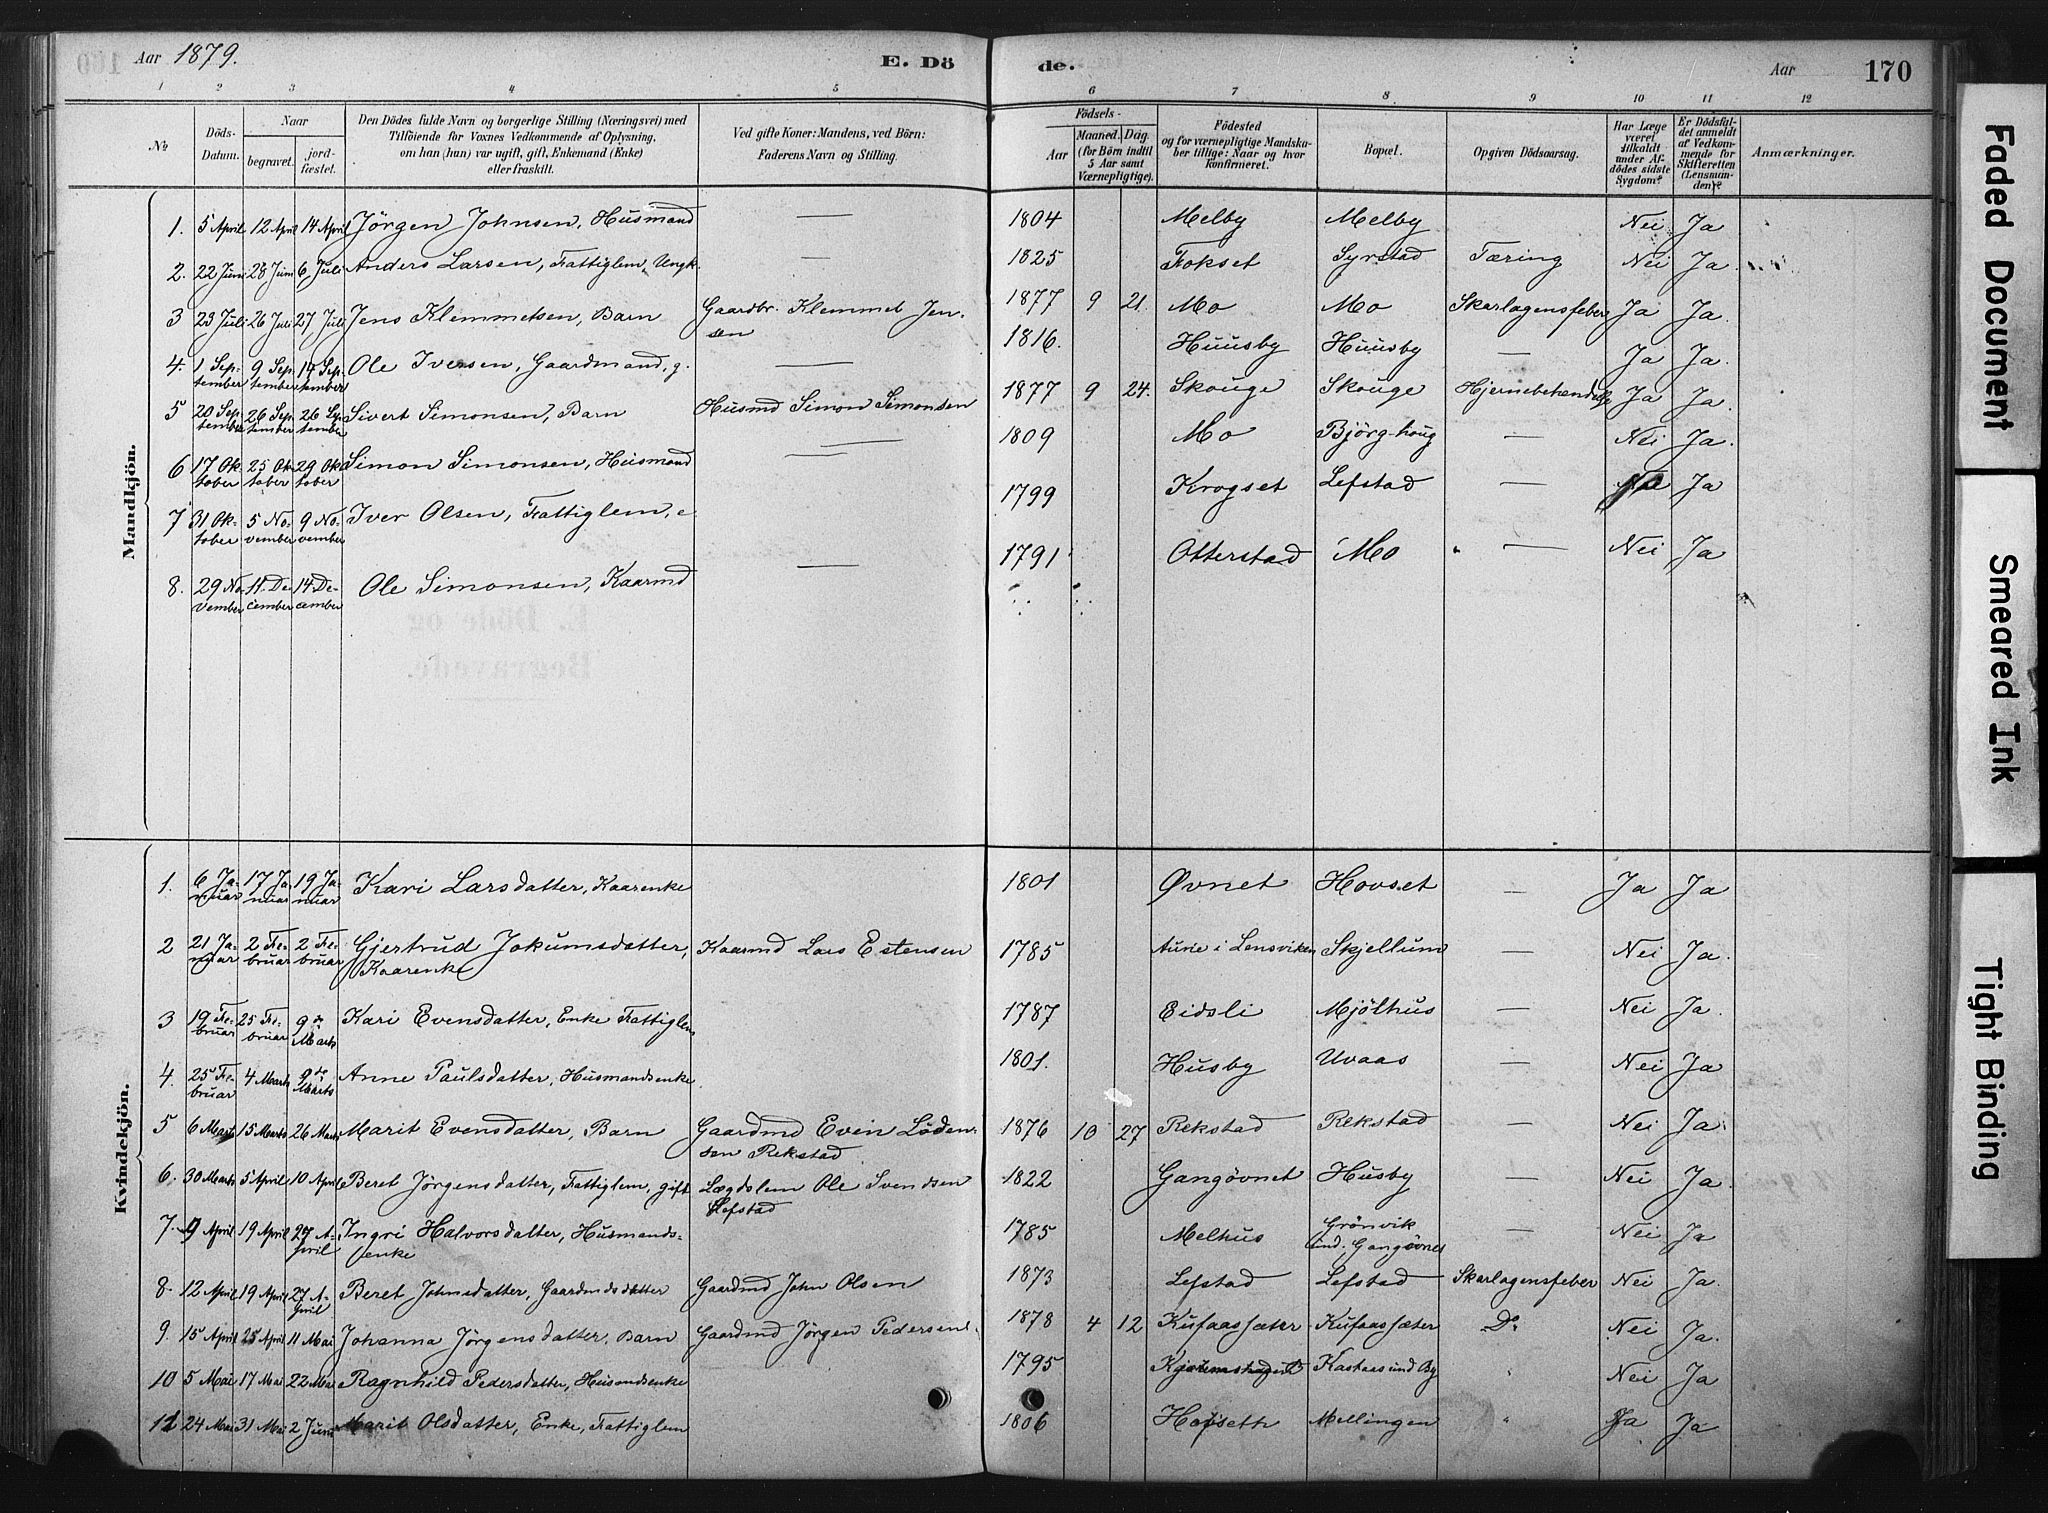 Aar 1879. E. Dö de. Aar 170
1 2 3 4 5 6 7 8 9 10 11 12
№
Döds-Datum.
Naar
begravet.
jord-fæstet.
Den Dödes fulde Navn og borgerlige Stilling (Næringsvei) med
Tilföiende for Voxnes Vedkommende af Oplysning,
om han (hun) var ugift, gift, Enkemand (Enke)
eller fraskilt.
Ved gifte Koner: Mandens, ved Börn:
Faderens Navn og Stilling.
Födsels-
Aar
Maaned. Dag.
(for Börn indtil
5 Aar samt
Værnepligtige).
Födested
og for værnepligtige Mandska-
ber tillige: Naar og hvor
konfirmeret.
Bopæl.
Opgiven Dödsaarsag.
Har Læge
været
tilkaldt
under Af-
dödes sidste
Sygdom?
Er Dödsfal-
det anmeldt
af Vedkom-
mende for
Skifteretten
(Lensman-
den)?
Anmærkninger.
Mandkjön.
1. 5 April 12 April 14 April Jörgen Johnsen, Husmand — 1804 Melby Melby Nei Ja
2. 22 Juni 28 Juni 6 Juli Anders Larsen, Fattiglem, Ungk. — 1825 Fokset Syrstad Tæring Nei Ja
3 23 Juli 26 Juli 27 Juli Jens Klemmetsen, Barn Gaardbr. Klemmet Jen- 1877 9 21. Mo Mo Skarlagensfeber Ja Ja.
sen
4. 1 Sep- 9 Sep- 14 Sep- Ole Iversen, Gaardmand, g. — 1816. Huusby Huusby — Ja Ja.
tember tember tember
5 20 Sep- 26 Sep- 26 Sep- Sivert Simonsen, Barn Husmd Simon Simonsen 1877 9 24. Skouge Skouge Ja Ja.
tember tember tember
6 17 Ok- 25 Ok- 29 Ok- Simon Simonsen, Husmand — 1809 Mo Björg-houg — Nei Ja.
tober tober tober
7 31 Ok- 5 No- 9 No- Iver Olsen, Fattiglem, e. 1799 Krogset Lefstad — Nei Ja
tober vember vember
8. 29 No- 11 De- 14 De- Ole Simonsen, Kaarmd — 1791 Otterstad Mo — Nei Ja
vember cember cember
Kvindekjön.
1. 6 Ja- 17 Ja- 19 Ja- Kari Larsdatter, Kaarenke 1801 Øvnet Hovset — Ja Ja
nuar nuar nuar
2 21 Ja- 2 Fe- 2 Fe- Gjertrud Jokumsdatter, Kaarmd Lars Estensen 1785 Aune i Lensviken Skjellum — Nei Ja.
nuar bruar bruar Kaarenke
3 19 Fe- 25 Fe- 9de Kari Evensdatter, Enke Fattiglem 1787 Eidsli Mjölhus — Nei Ja.
bruar bruar Marts
4. 25 Fe- 4 Marts 9de Anne Paulsdatter, Husmandsenke. 1801. Husby Uvaas — Nei Ja
bruar Marts
5 6 Marts 15 Marts 26 Marts Marit Evensdatter, Barn Gaardmd Even Löden- 1876 10 27 Rekstad Rekstad — Nei Ja
sen Rekstad
6. 30 Marts 5 April 10 April Beret Jörgensdatter, Fattiglem, gift Lægdslem Ole Svendsen 1822 Gangövnet Husby — Nei Ja.
Lefstad
7. 9 April 19 April 27 A- Ingri Halvorsdatter, Husmands- 1785 Melhus Grönvik — Nei Ja
pril enke und. Gangövnet
8. 12 April 19 April 27 A- Beret Johnsdatter, Gaardmdsdatter Gaardmd John Olsen 1873 Lefstad Lefstad Skarlagensfeber Nei Ja.
pril
9. 15 April 25 April 11 Mai Johanna Jörgensdatter, Barn Gaardmd Jörgen Pedersen 1878 4 12 Kufaassæter Kufaassæter Do Nei Ja.
10 5 Mai 17 Mai 22 Mai Ragnhild Pedersdatter, Husmdsenke 1795 Kastaas und By Nei Ja
11 24 Mai 31 Mai 2 Juni Marit Olsdatter, Enke, Fattiglem 1806 Hofseth Mellingen " Ja Ja
Faded Document
Smeared Ink
Tight Binding